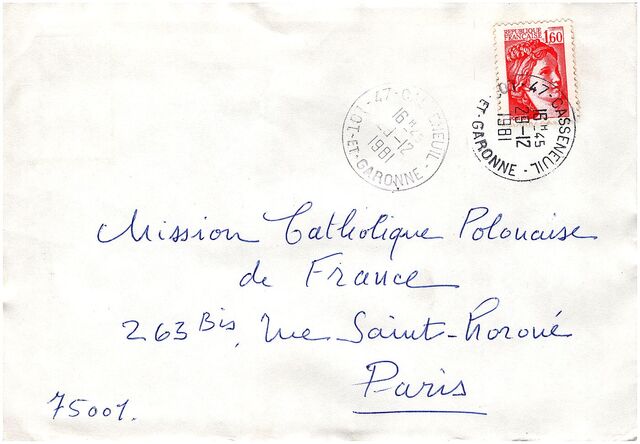 REPUBLIQUE FRANCAISE 1,60
47 - CASSENEUIL
16H45
29-12
1981
LOT-ET-GARONNE -
47 - CASSENEUIL
16H45
29-12
1981
LOT-ET-GARONNE -
Mission Catholique Polonaise
de France
263 Bis, rue Saint-Honoré
Paris
75001.